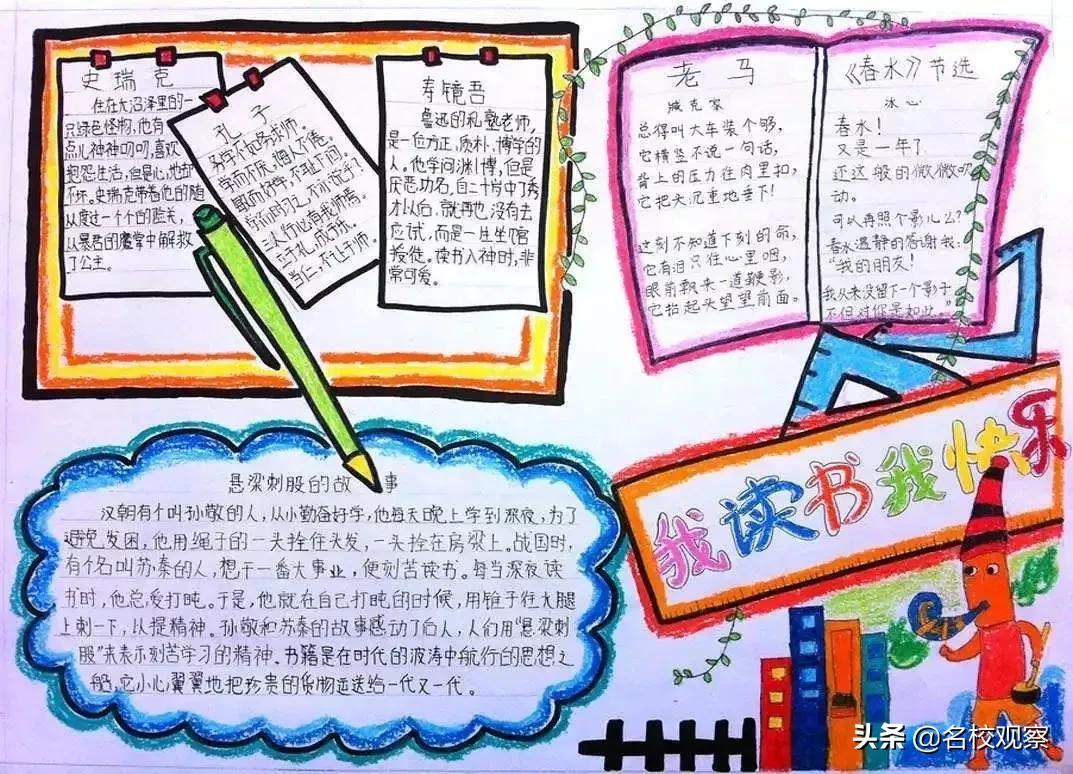 史瑞克
住在大沼泽里的一
只绿色怪物,他有
点儿神神叨叨,喜欢
抱怨生活,但是心地却
不坏。史瑞克带着他的随
从度过一个个的险关,
从暴君的魔掌中解救
了公主。
孔子
学而不厌,诲人不倦。
敏而好学,不耻下问
三人行必有我师焉。
立于礼,成于乐。
当仁,不让于师。
寿镜吾
鲁迅的私塾老师,
是一位方正,质朴,博学的
人。他学问渊博,但是
厌恶功名,自二十岁中了秀
才以后,就再也没有去
应试,而是一生坐馆
授徒。读书入神时,非
常可爱。
老马
臧克家
总得叫大车装个够,
它横竖不说一句话,
背上的压力往肉里扣,
它把头沉重地垂下!
这刻不知道下刻的命,
它有泪只往心里咽,
眼前飘来一道鞭影,
它抬起头望望前面。
《春水》节选
冰心
春水!
又是一年了
还这般的微微吹
动。
可以再照个影儿么?
春水温静的感谢我:
“我的朋友!
我从来没留下一个影子
不但对你是如此。
我读书我快乐
悬梁刺股的故事
汉朝有个叫孙敬的人,从小勤奋好学,他每天晚上学到深夜,为了
避免发困,他用绳子的一头拴住头发,一头拴在房梁上。战国时,
有个名叫苏秦的人,想干一番大事业,便刻苦读书。每当深夜读
书时,他总爱打盹。于是,他就在自己打盹的时候,用锥子往大腿
上刺一下,以提精神。孙敬和苏秦的故事感动了后人,人们用“悬梁刺
股”来表示刻苦学习的精神。书籍是在时代的波涛中航行的思想之
船,它小心翼翼地把珍贵的货物运送给一代又一代。
头条 @名校观察